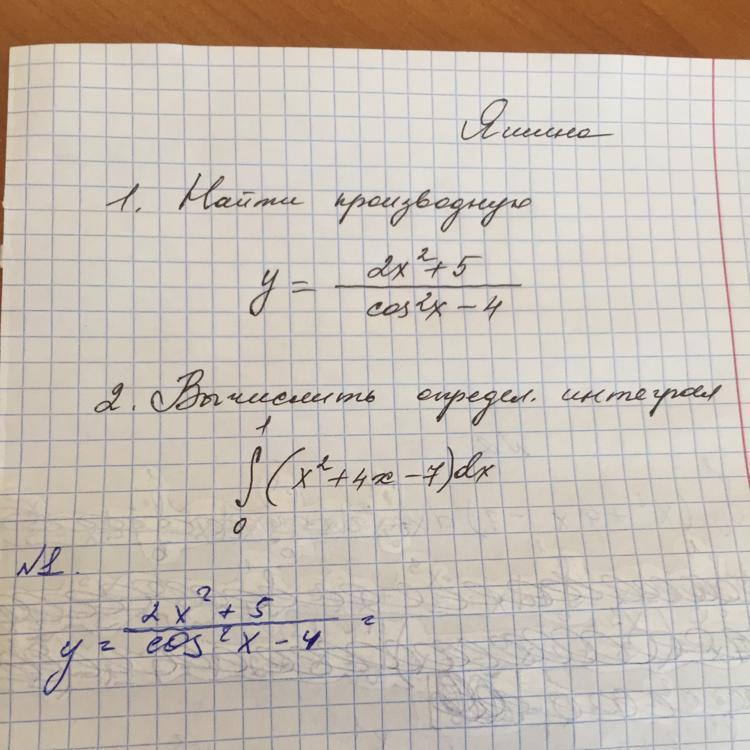 Яшина
1. Найти производную
y = (2x² + 5) / (cos²x – 4)
2. Вычислить определ. интеграл
∫₀¹ (x² + 4x – 7)dx
№1.
y = (2x² + 5) / (cos²x – 4) =